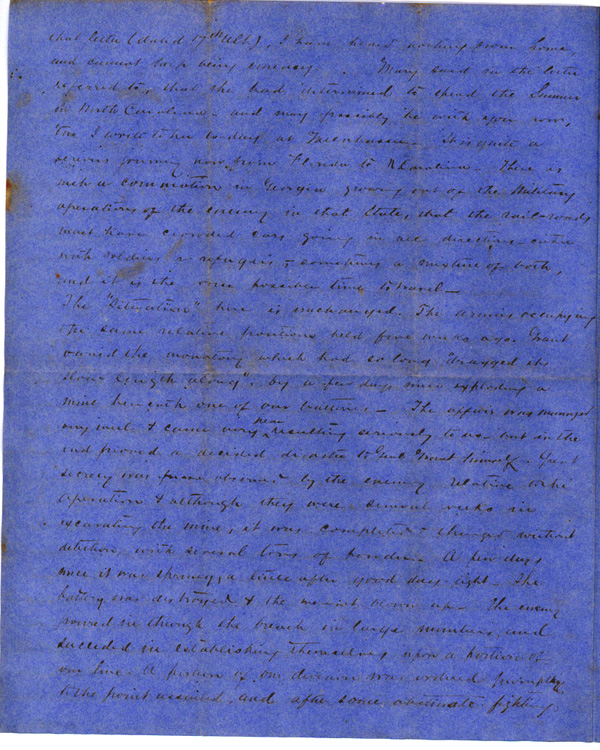 that letter (dated 17th Ult), I have heard nothing from home,
and cannot help being uneasy. Mary said in the letter
referred to, that she had determined to spend the Summer
in North Carolina - and may possibly be with you now,
tho I wrote to her to-day at Tallahassee - It is quite a
serious journey now from Florida to N Carolina - There is
such a commotion in Georgia growing out of the Military
operations of the enemy in that State, that the rail-roads
must have crowded cars going in all directions either
with soldiers or refugees, - sometimes a mixture of both,
and it is the worst possible time to travel -
The "Situation" here is unchanged. The armies occupying
the same relative positions held five weeks ago. Grant
varied the monotony which had so long "dragged its
slow length along", by a few days since exploding a
mine beneath one of our batteries - The affair was managed
very well & came very near resulting seriously to us - but in the
end proved a decided disaster to Genl Grant himself - Great
secrecy was observed by the enemy relative to the
operation & although they were several weeks in
excavating the mine, it was completed & charged without
detection, with several tons of powder - A few days
since it was sprung, a little after good day-light - The
battery was destroyed & the men in it blown up - The enemy
poured in through the breach in large numbers, and
succeeded in establishing themselves upon a portion of
our line - A portion of our division was ordered promptly
to the point assailed, and after some obstinate fighting